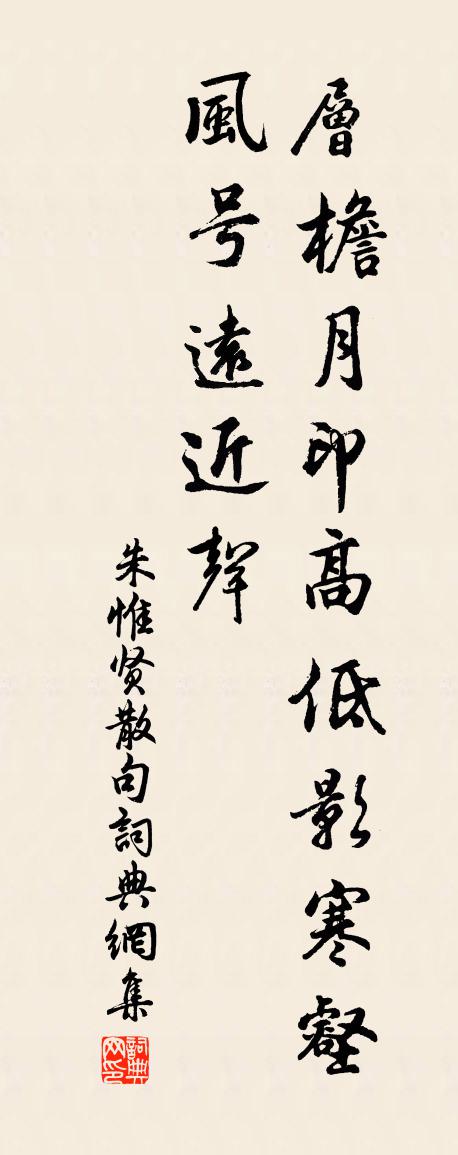 層檐月印高低影寒壑
風号遠近聲
朱惟贤散句詞典網集
詞典网印